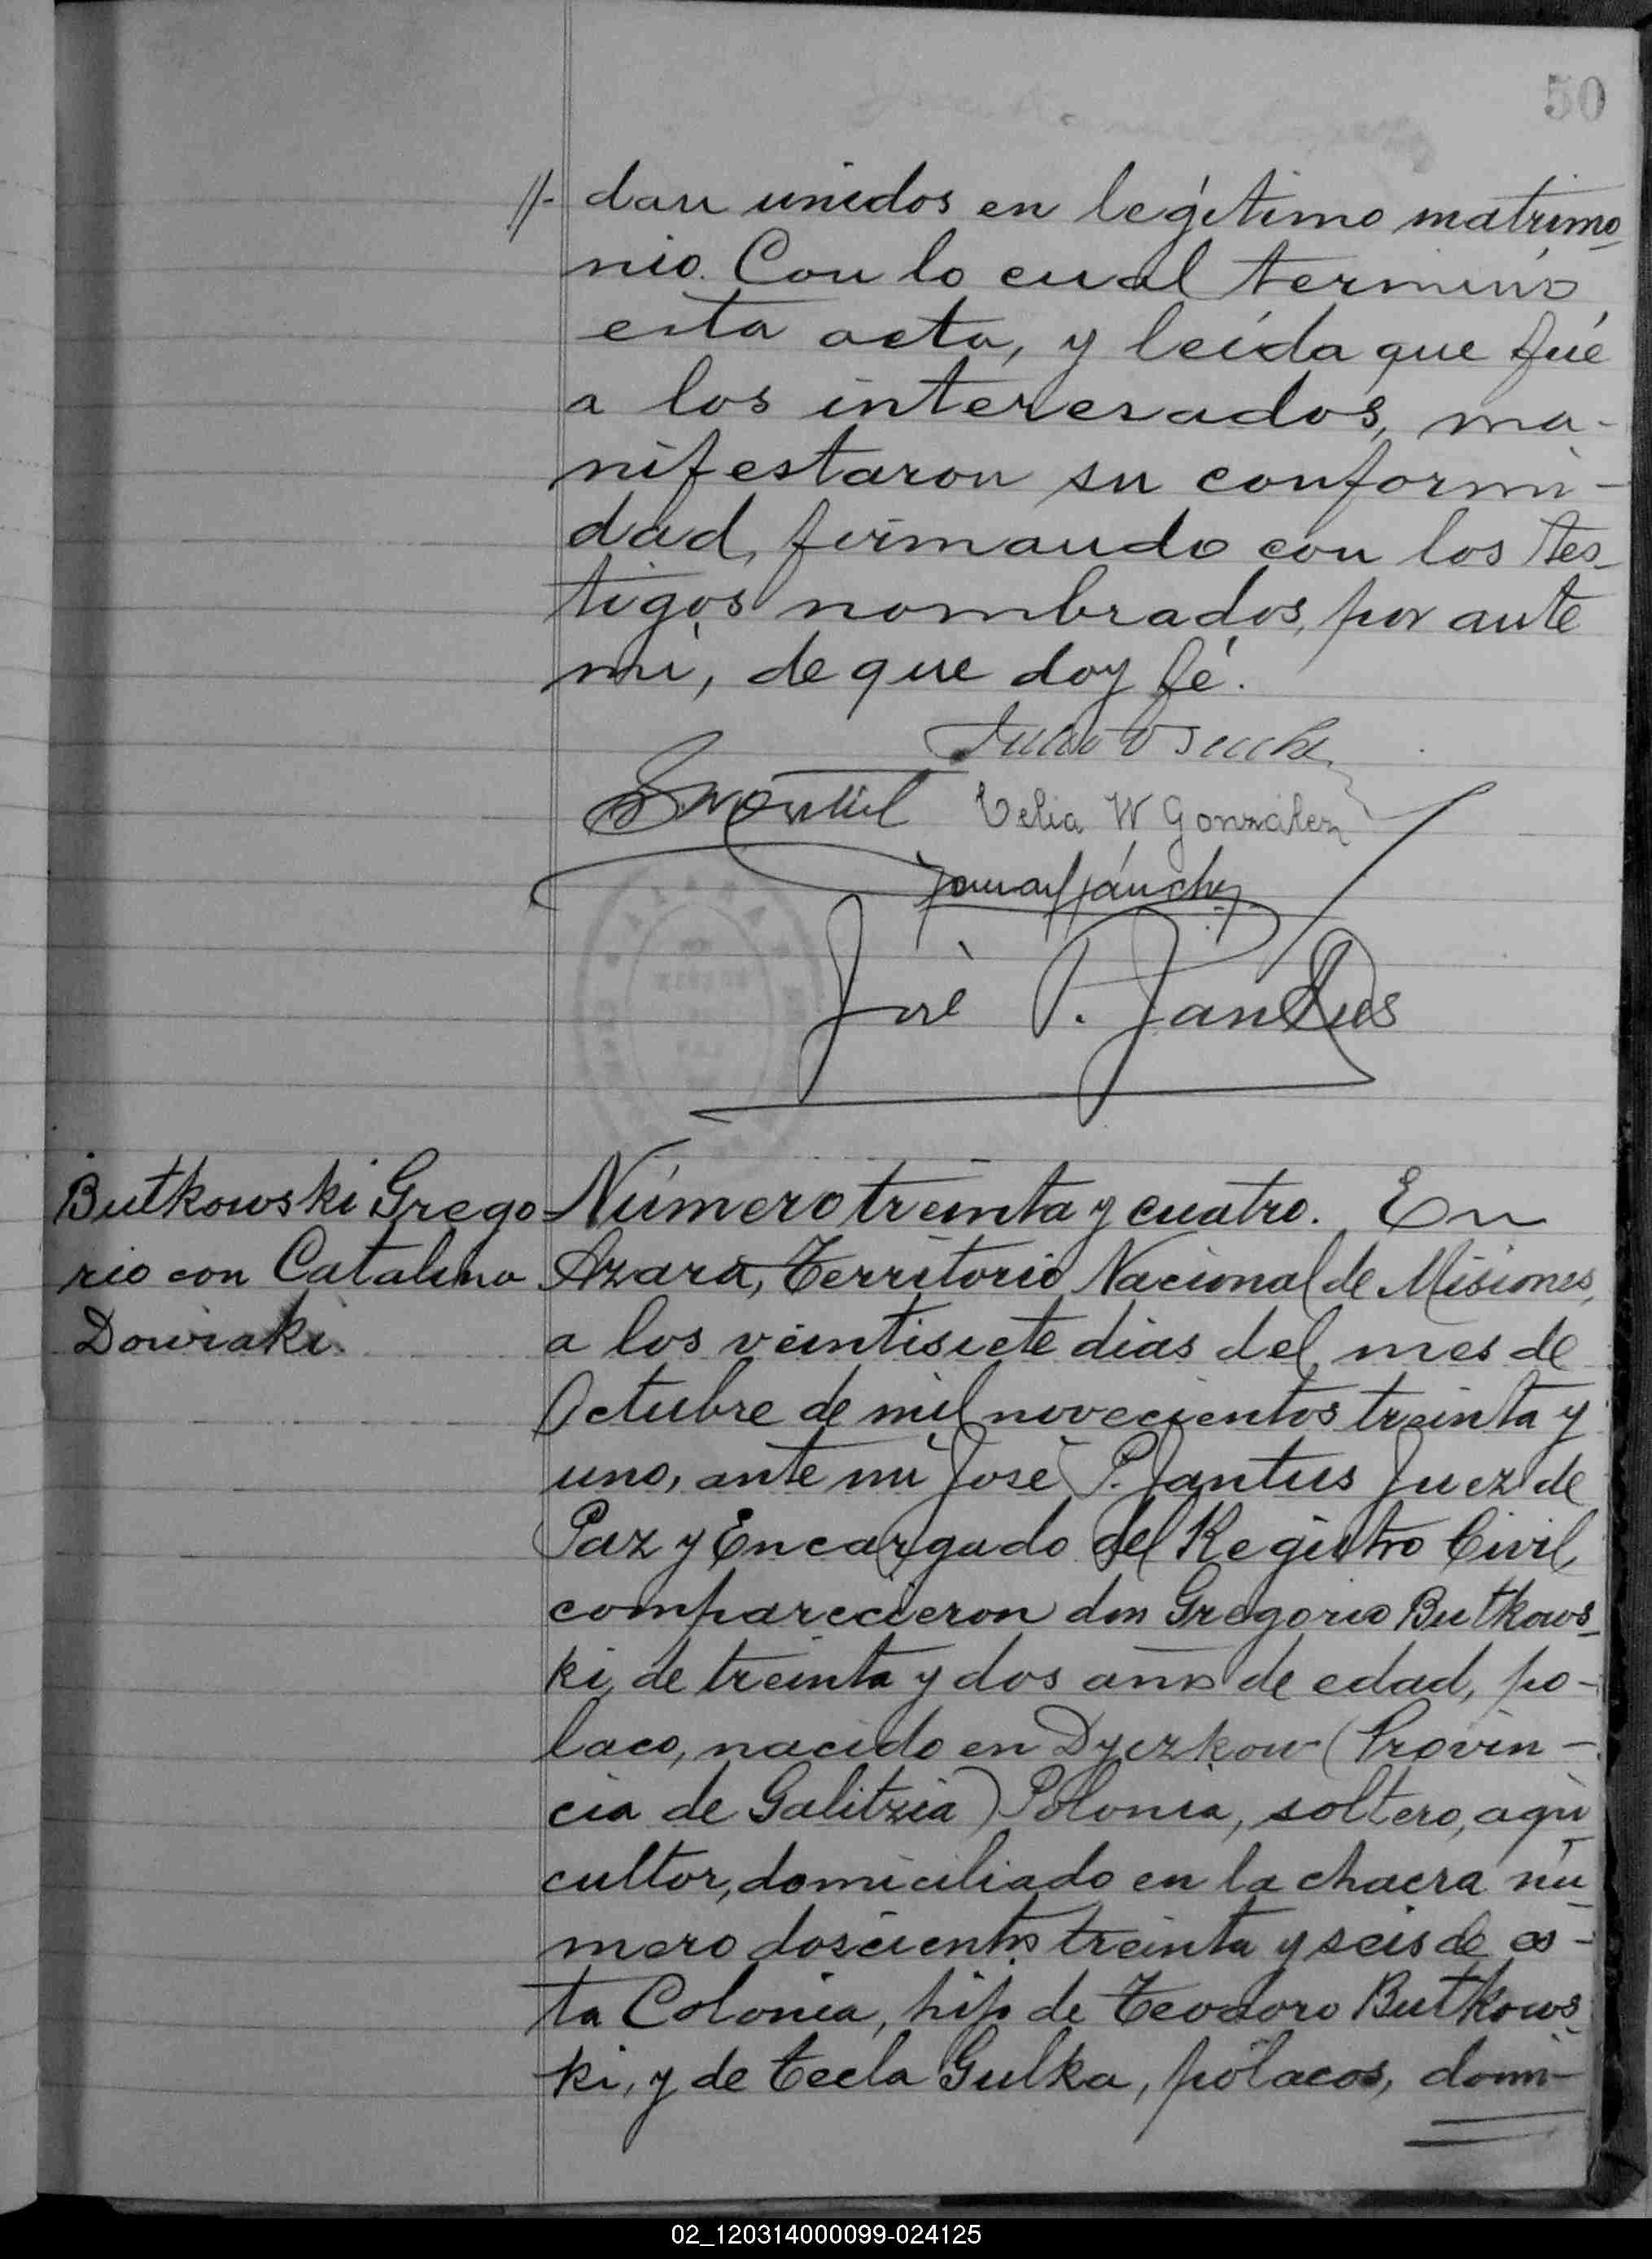 50
//- dan unidos en legítimo matrimo-
nio. Con lo cual terminó
esta acta, y leída que fué
a los interesados, ma-
nifestaron su conformi-
dad, firmando con los tes-
tigos nombrados, por ante
mi, de que doy fé.
Celia W González
José P. Jantus
Butkowski Grego-
rio con Catalina
Dowraki.
Número treinta y cuatro. En
Azara, Territorio Nacional de Misiones,
a los veintisiete dias del mes de
Octubre de mil novecientos treinta y
uno, ante mi José P. Jantus Juez de
Paz y Encargado del Registro Civil,
comparecieron don Gregorio Butkows-
ki, de treinta y dos años de edad, po-
laco, nacido en Dyczkow (Provin-
cia de Galitzia) Polonia, soltero, agri
cultor, domiciliado en la chacra nú-
mero doscientos treinta y seis de es-
ta Colonia, hijo de Teodoro Butkows-
ki, y de Tecla Gulka, polacos, domi-
02_120314000099-024125